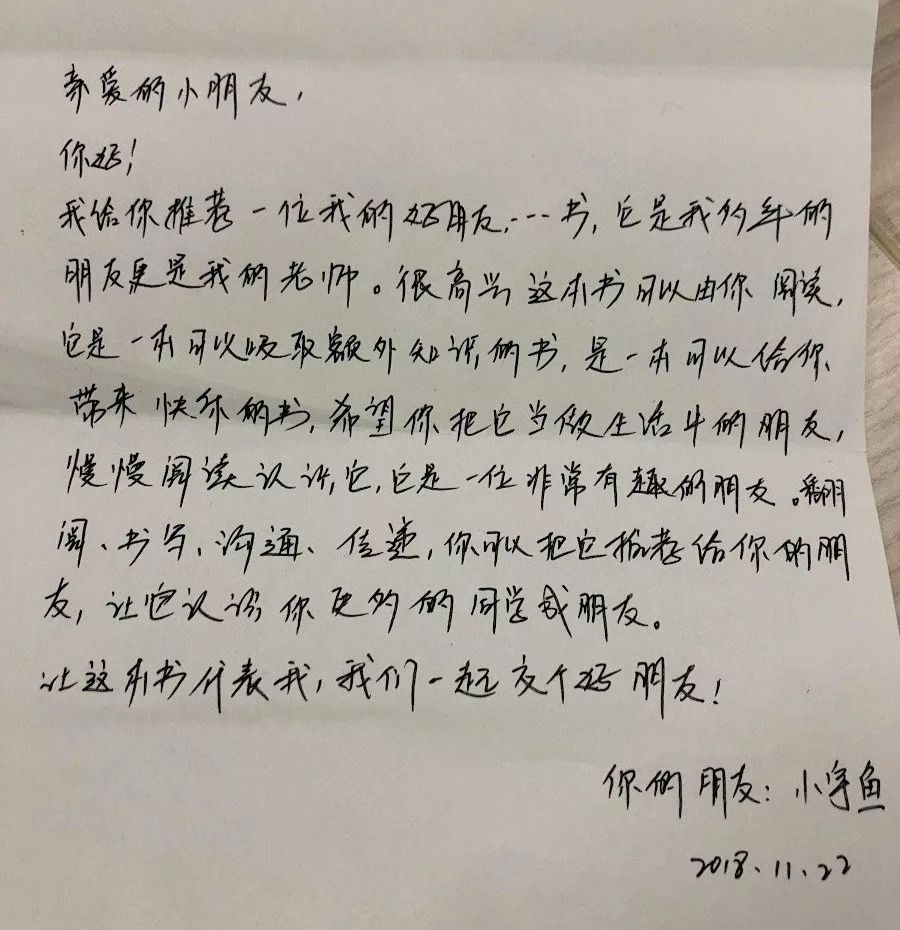 亲爱的小朋友,
你好!
我给你推荐一位我的好朋友,---书,它是我多年的
朋友更是我的老师。很高兴这本书可以由你阅读,
它是一本可以吸取额外知识的书,是一本可以给你
带来快乐的书,希望你把它当做生活中的朋友,
慢慢阅读认识它,它是一位非常有趣的朋友。翻
阅、书写、沟通、传递,你可以把它推荐给你的朋
友,让它认识你更多的同学或朋友。
让这本书代表我,我们一起交个好朋友!
你的朋友:小宇鱼
2018.11.22